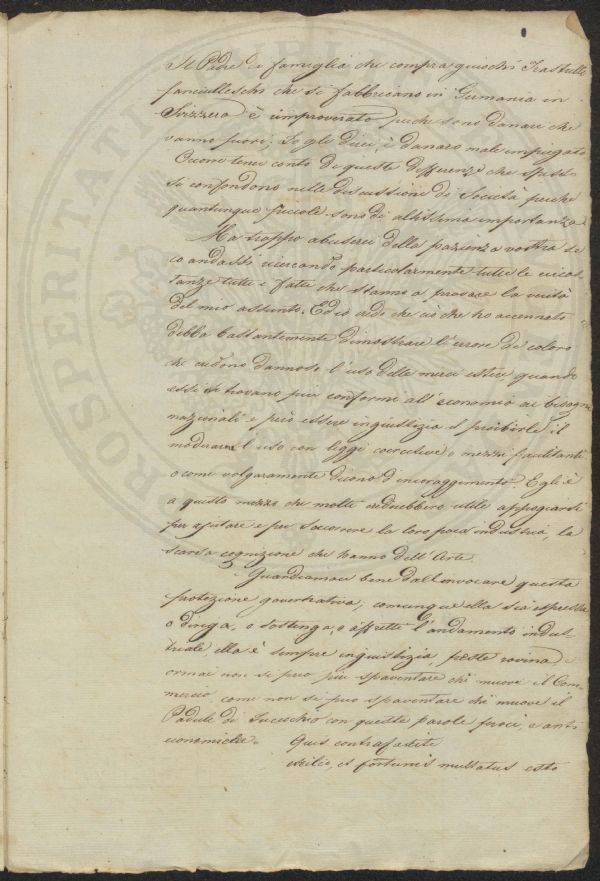 Il Padre di famiglia che compra quiochi Trastulli
fanciulleschi che si fabbricano in Germania in
Svizzera è improverato perche sono danari che
vanno fuori, Io gli direi, è danaro male impiegato
Ouoni tener conto di queste differenze che spess
si confondono nelle discussioni di Società perche
quantunque piccole sono di altissima importanza
Ma troppo abuserei della pazienza vostra se
io andassi ricercando particolarmente tutte le circos
tanze tutti i fatti che stanno a provare la verità
del mio assunto. Ed io credo che ciò che ho accennato
debba bastantemente dimostrare l'errore di coloro
che credono dannoso l'uso delle merci estere, quando
essi si trovano più conformi all'economia ai bisogni
nazionali e però essere ingiustizia il proibirle il
moderarne l'uso con leggi coercitive o mezzi facilitanti
o come volgaramente dicono d'incoraggimento. Egli è
a questo mezzo che molti crederebbero utile appogiarsi
per ajutare e per soccorrere la loro poca industria, la
scarsa cognizione che hanno dell'Arte.
Guardiamoci bene dall'invocare questa
protezione governativa, comunque ella sia espressa
o diriga, o sostenga, o affretti l'andamento indus
triale ella è sempre ingiustizia, peste rovina e
ormai non si può più spaventare chi muove il Com
mercio come non si può spaventare chi muove il
Padule di Fucecchio con queste parole feroci, e anti
economiche.
Quis contrafacite
exilio, et fortunis multatus esto